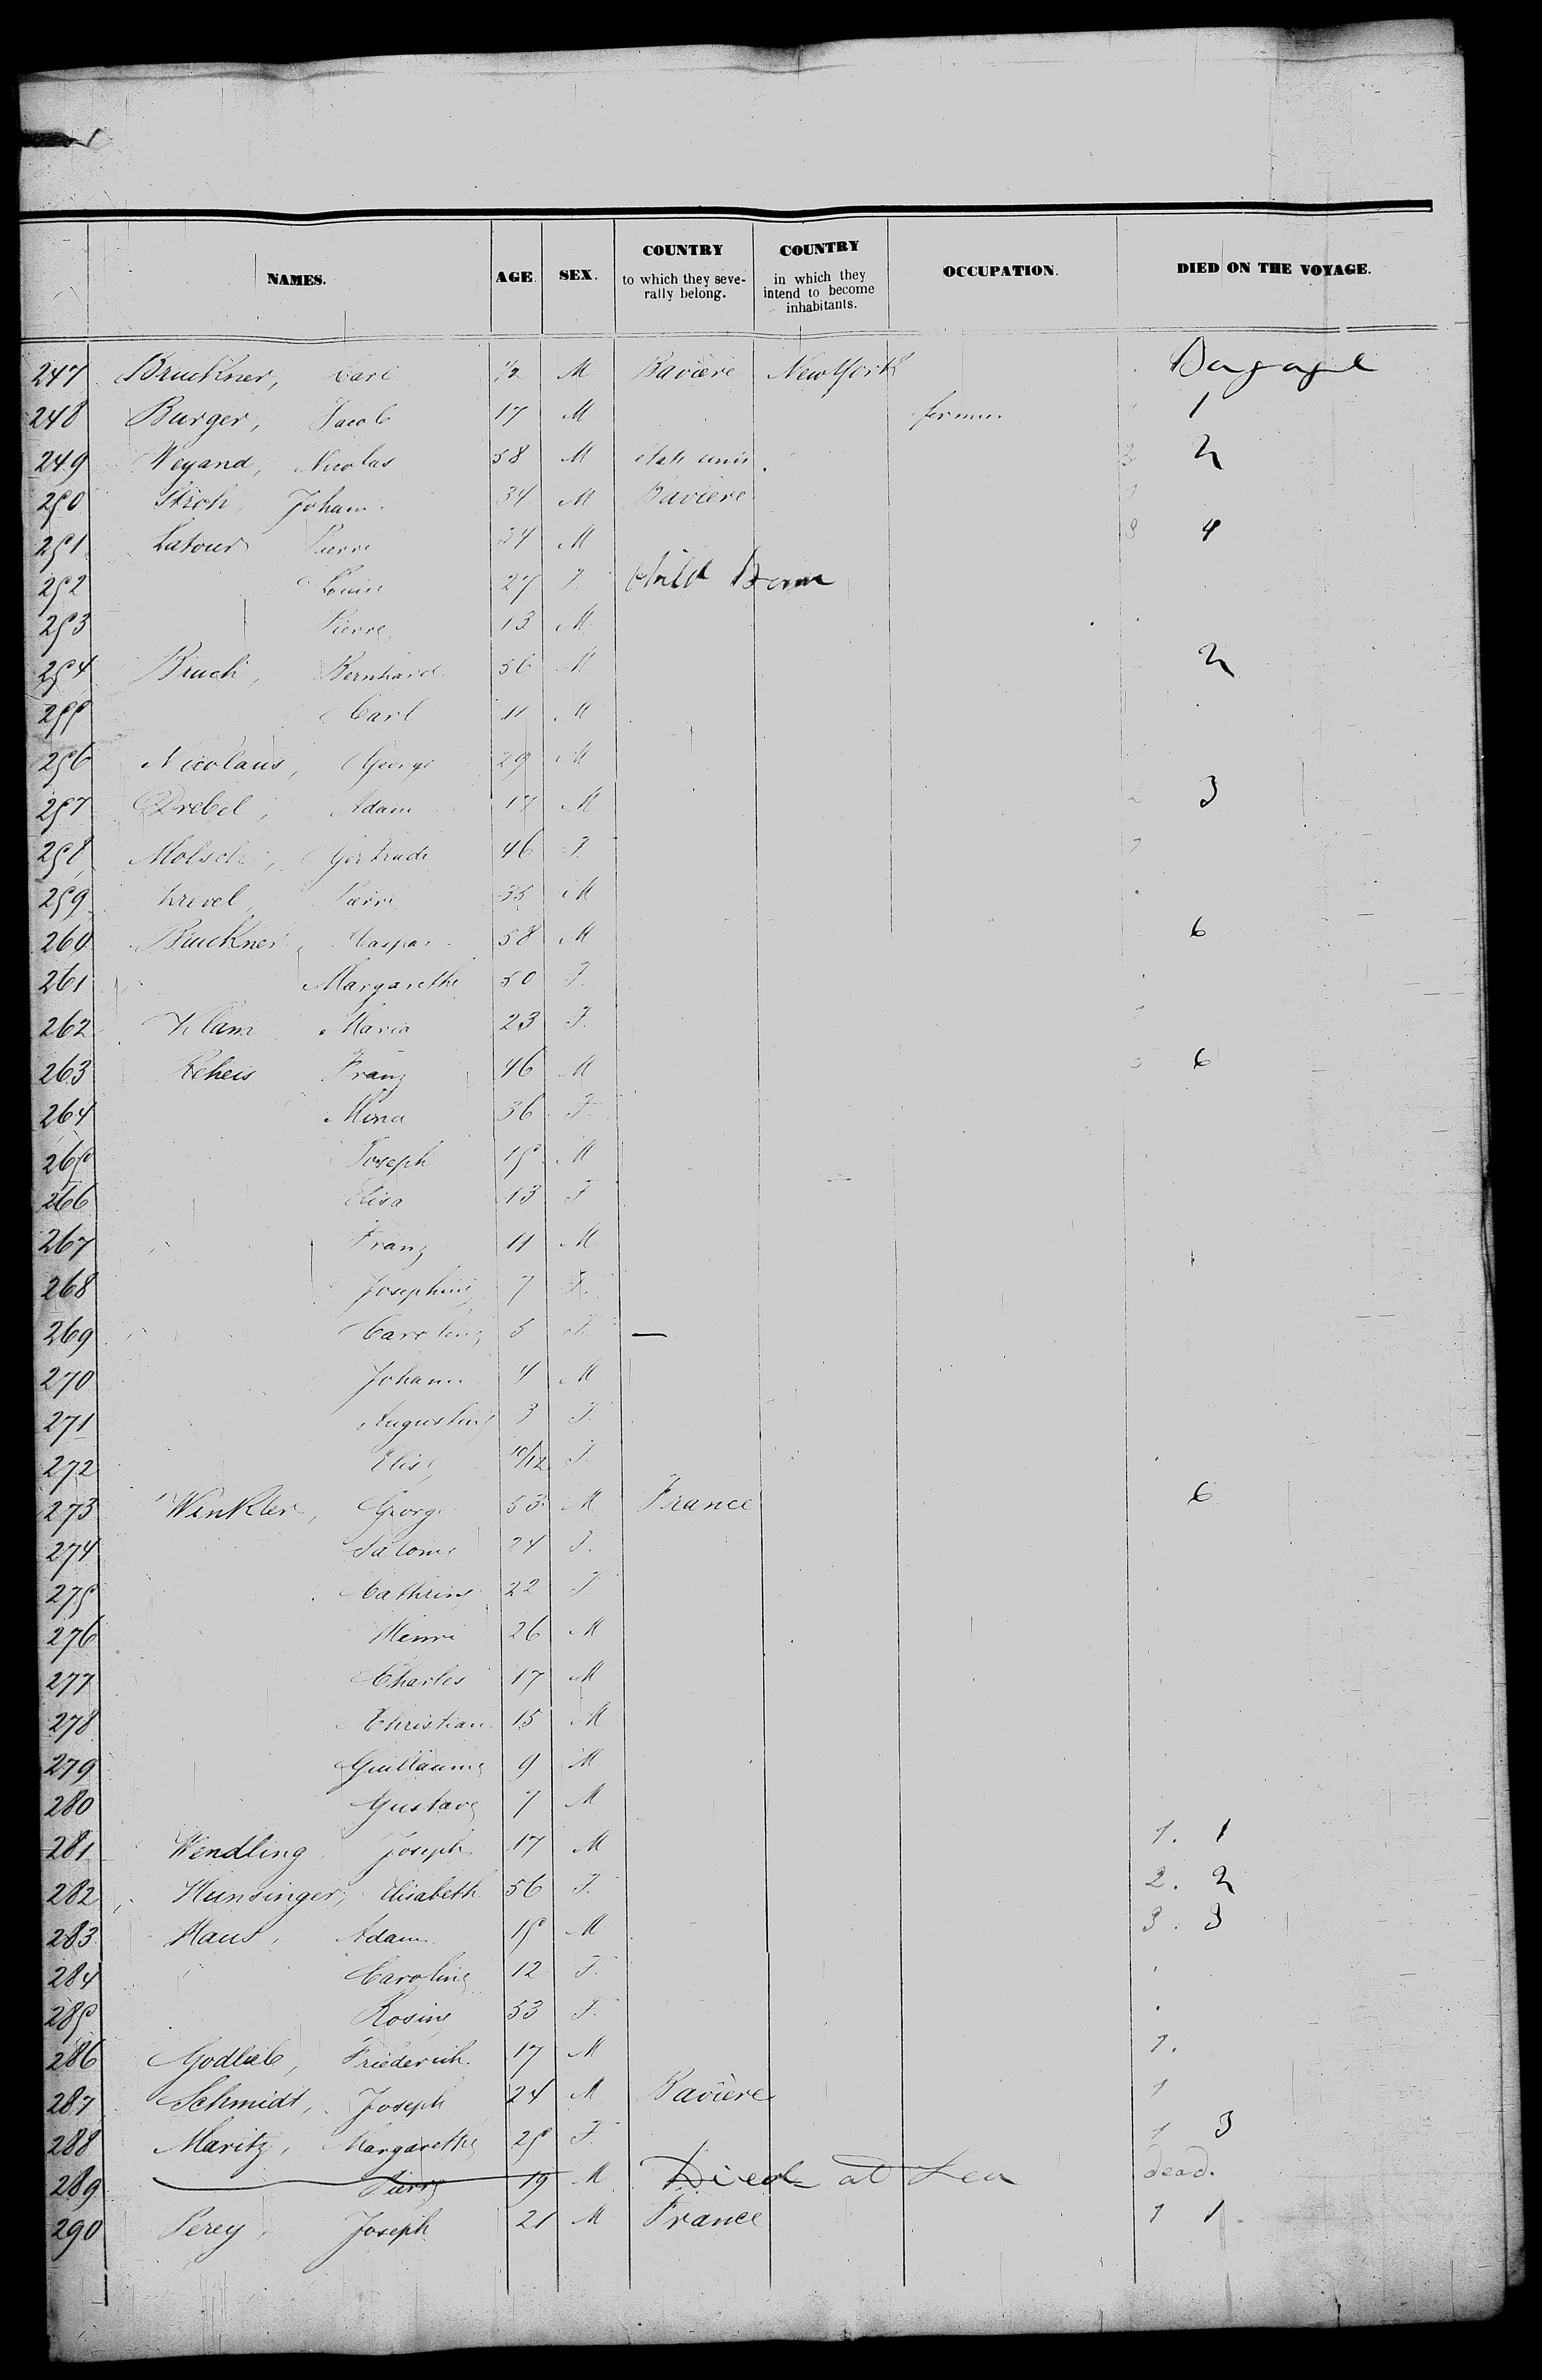 NAMES. AGE. SEX. COUNTRY to which they severally belong. COUNTRY in which they intend to become inhabitants. OCCUPATION. DIED ON THE VOYAGE.
247 Bruckner, Carl 1/2 M Bavière New York Bagage
248 Burger, Jacob 17 M 1
249 Weyand, Nicolas 58 M états unis 2
250 Stroh, Johann 34 M Bavière 1
251 Latour Pierre 34 M 3 4
252 Louise 27 F Child Born
253 Pierre 13 M
254 Bruch, Bernhard 56 M 2
255 Carl 11 M
256 Nicolaus, George 29 M
257 Drebel, Adam 17 M 3
258 Molsch, Gertrude 46 F. 1
259 Krevel Pierre 35 M
260 Bruckner, Caspar 58 M 6
261 Margarethe 50 F.
262 Klam Maria 23 F.
263 Reheis Franz 46 M 6
264 Mina 36 F.
265 Joseph 15 M
266 Elisa 13 F
267 Franz 11 M
268 Josephine 7 F.
269 Caroline 5 F. —
270 Johann 4 M
271 Augustine 3 F.
272 Elise 10/12 F.
273 Winkler, George 53 M France 6
274 Salome 24 F.
275 Cathrine 22 F
276 Henri 26 M
277 Charles 17 M
278 Christian 15 M
279 Guillaume 9 M
280 Gustave 7 M
281 Wendling, Joseph 17 M 1. 1
282 Hunsinger, Elisabeth 56 F. 2. 2
283 Haus, Adam 15 M 3. 3
284 Caroline 12 F.
285 Rosine 53 F.
286 Godlieb, Friederich 17 M 1.
287 Schmidt, Joseph 24 M Bavière 1
288 Maritz, Margarethe 25 F. 1 3
289 Pierre 19 M Died at Sea dead.
290 Perey, Joseph 21 M France 1 1